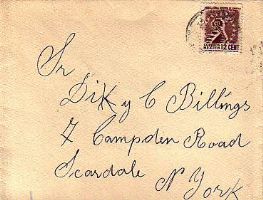 Sr
Dik y C Billings
7 Campden Road
Scardale
N York